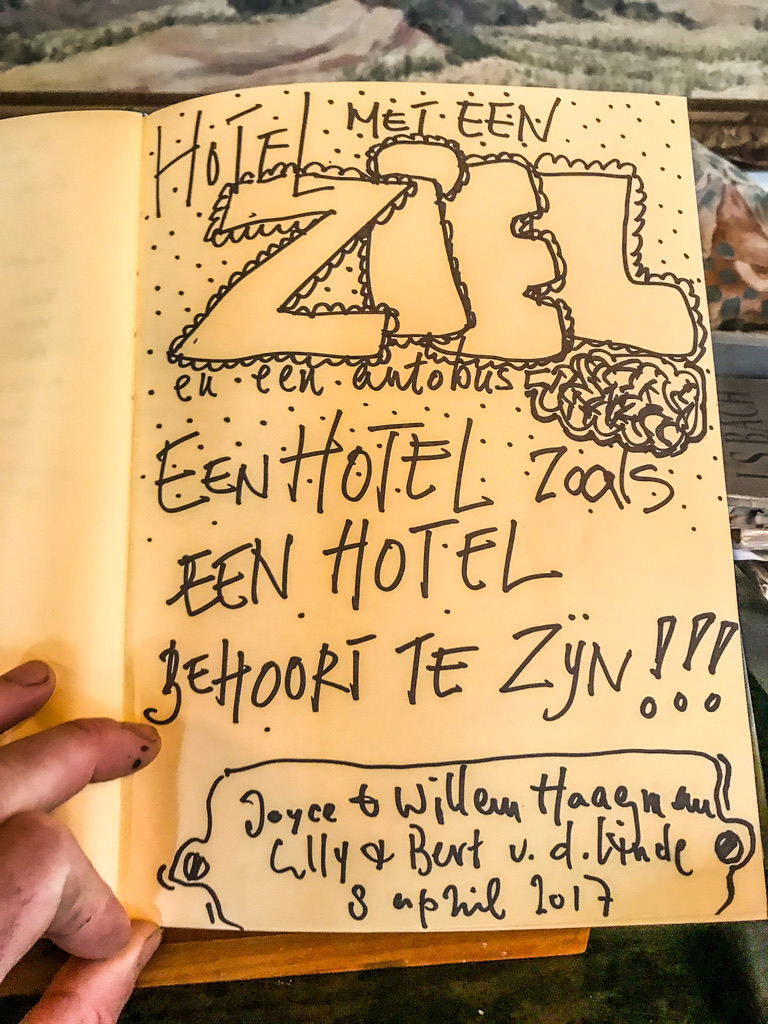 HOTEL MET EEN
ZIEL
en een autobus
EEN HOTEL zoals
EEN HOTEL
BEHOORT TE ZIJN!!!
Joyce & Willem Haagman
Lilly & Bert v.d. Linde
8 april 2017
BACH